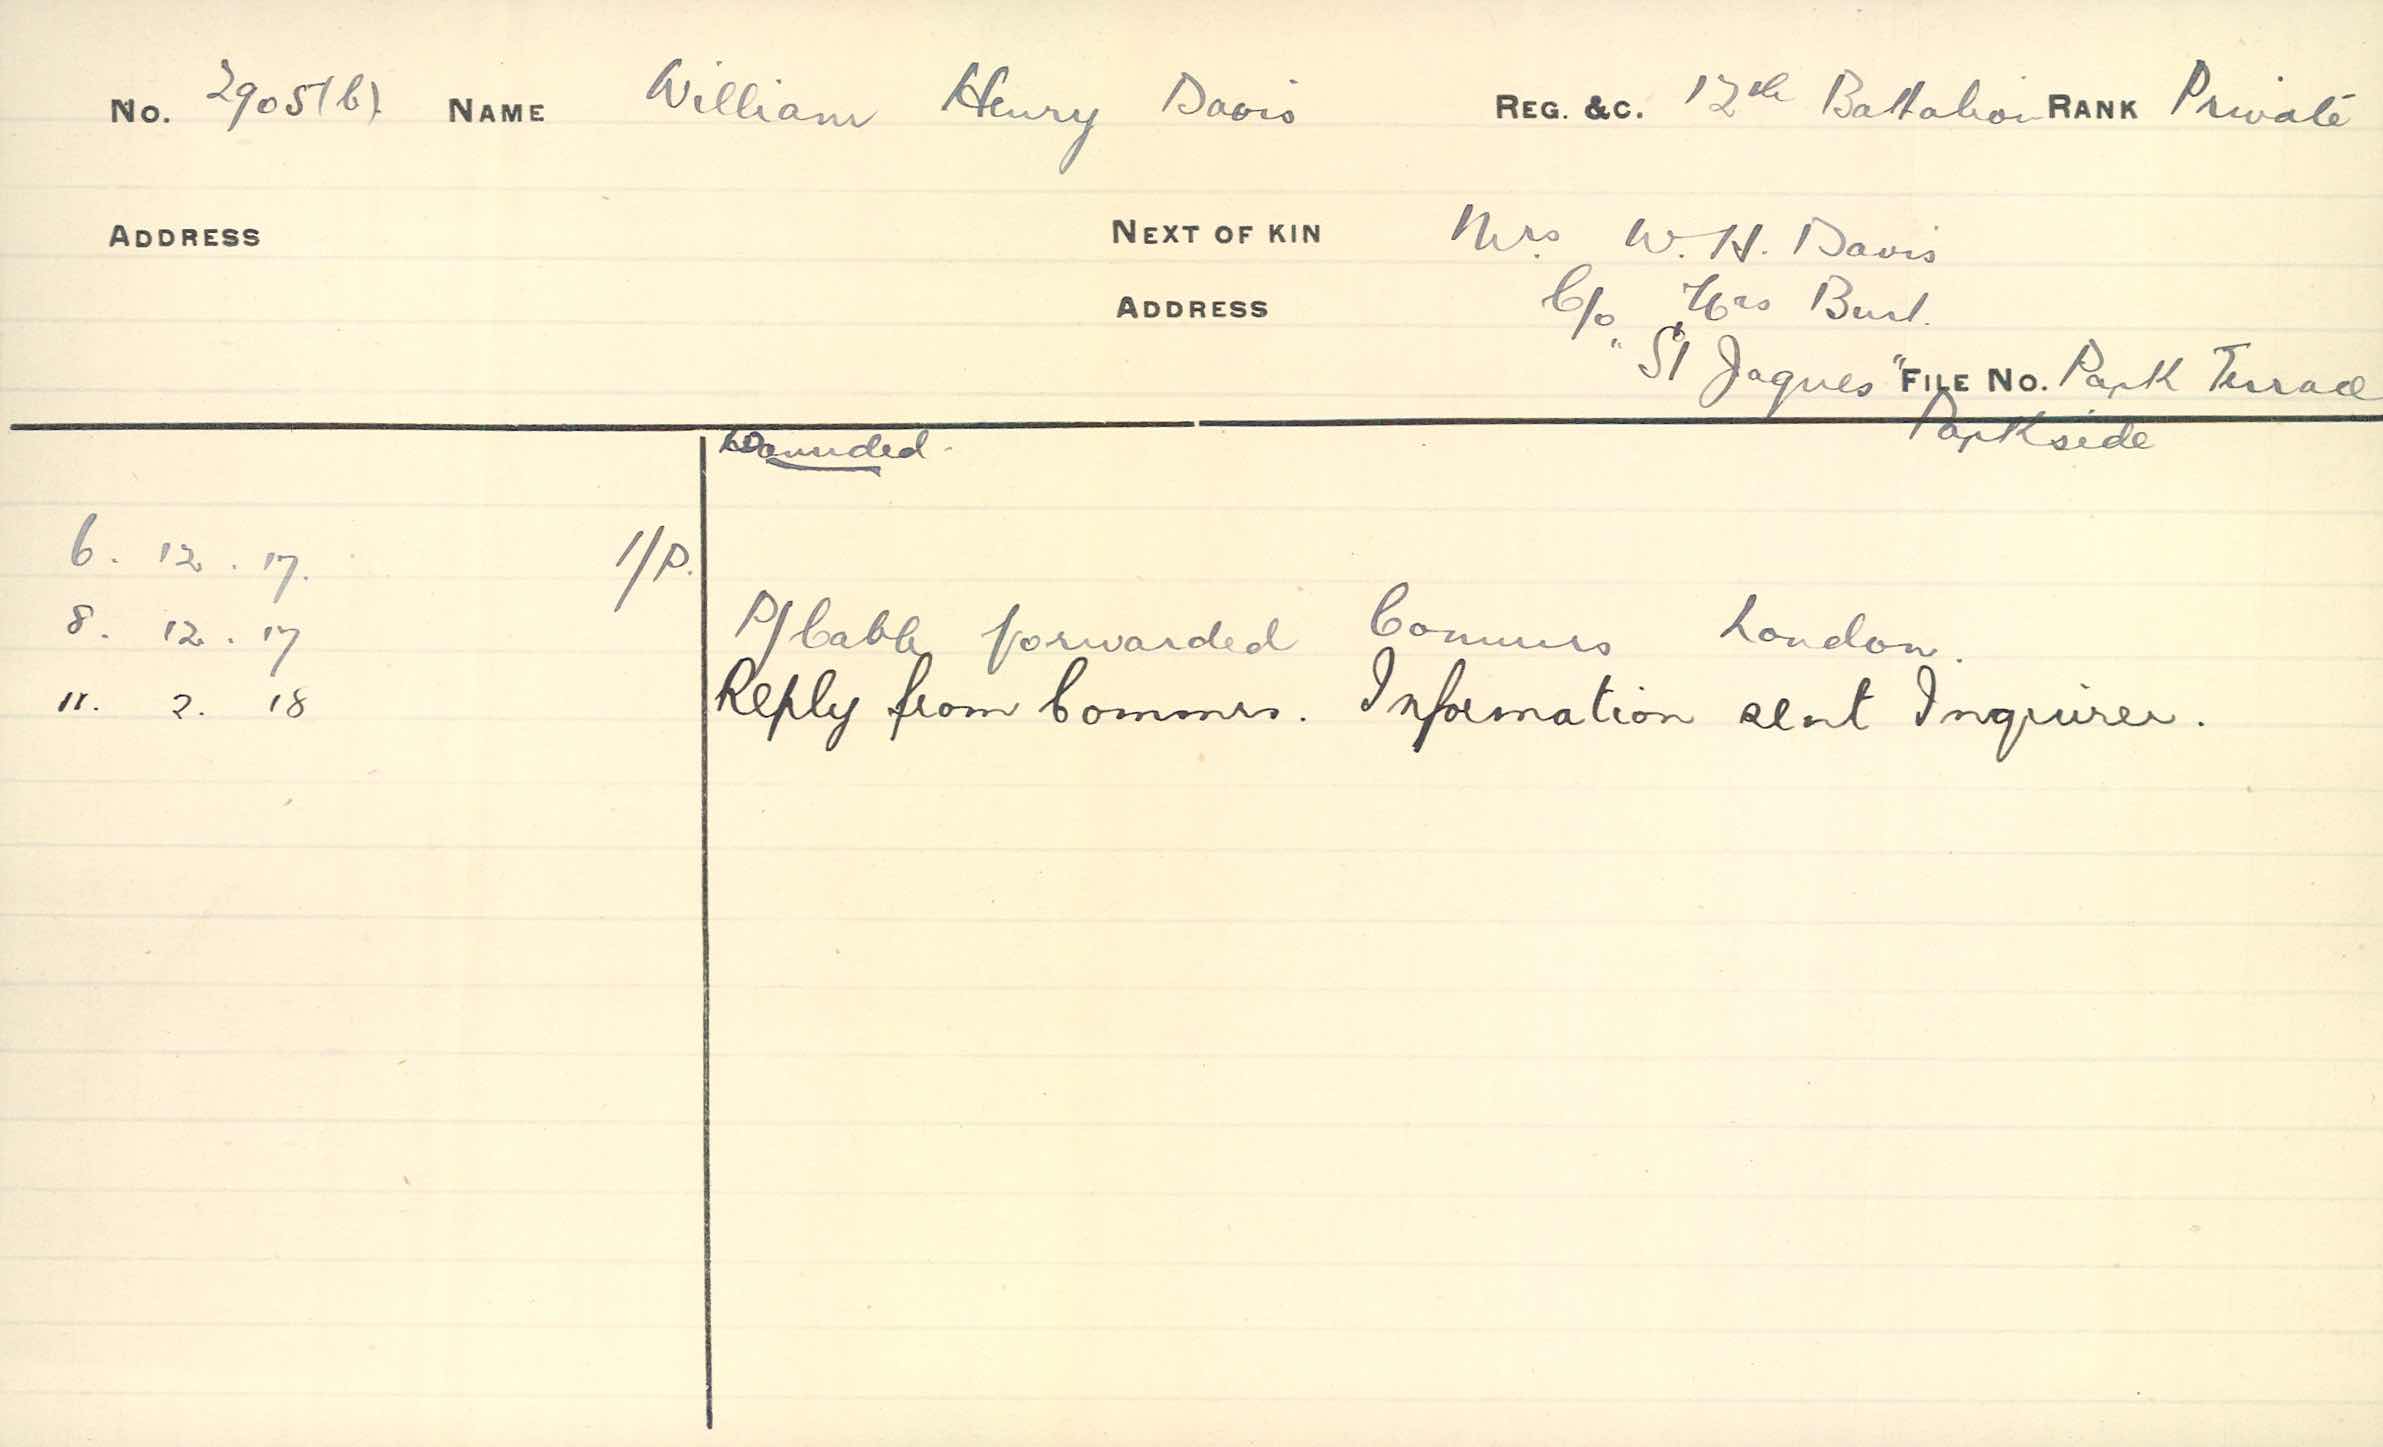 No. 2905(b). NAME William Henry Davis REG. &C. 12th Battalion RANK Private
ADDRESS NEXT OF KIN Mrs W. H. Davis
ADDRESS C/o Mrs Burt.
"St Jaques" FILE No. Park Terrace
Parkside
Wounded.
6. 12. 17. 1/P.
8. 12. 17 P/Cable forwarded Commrs London.
11. 2. 18 Reply from Commrs. Information sent Inquirer.